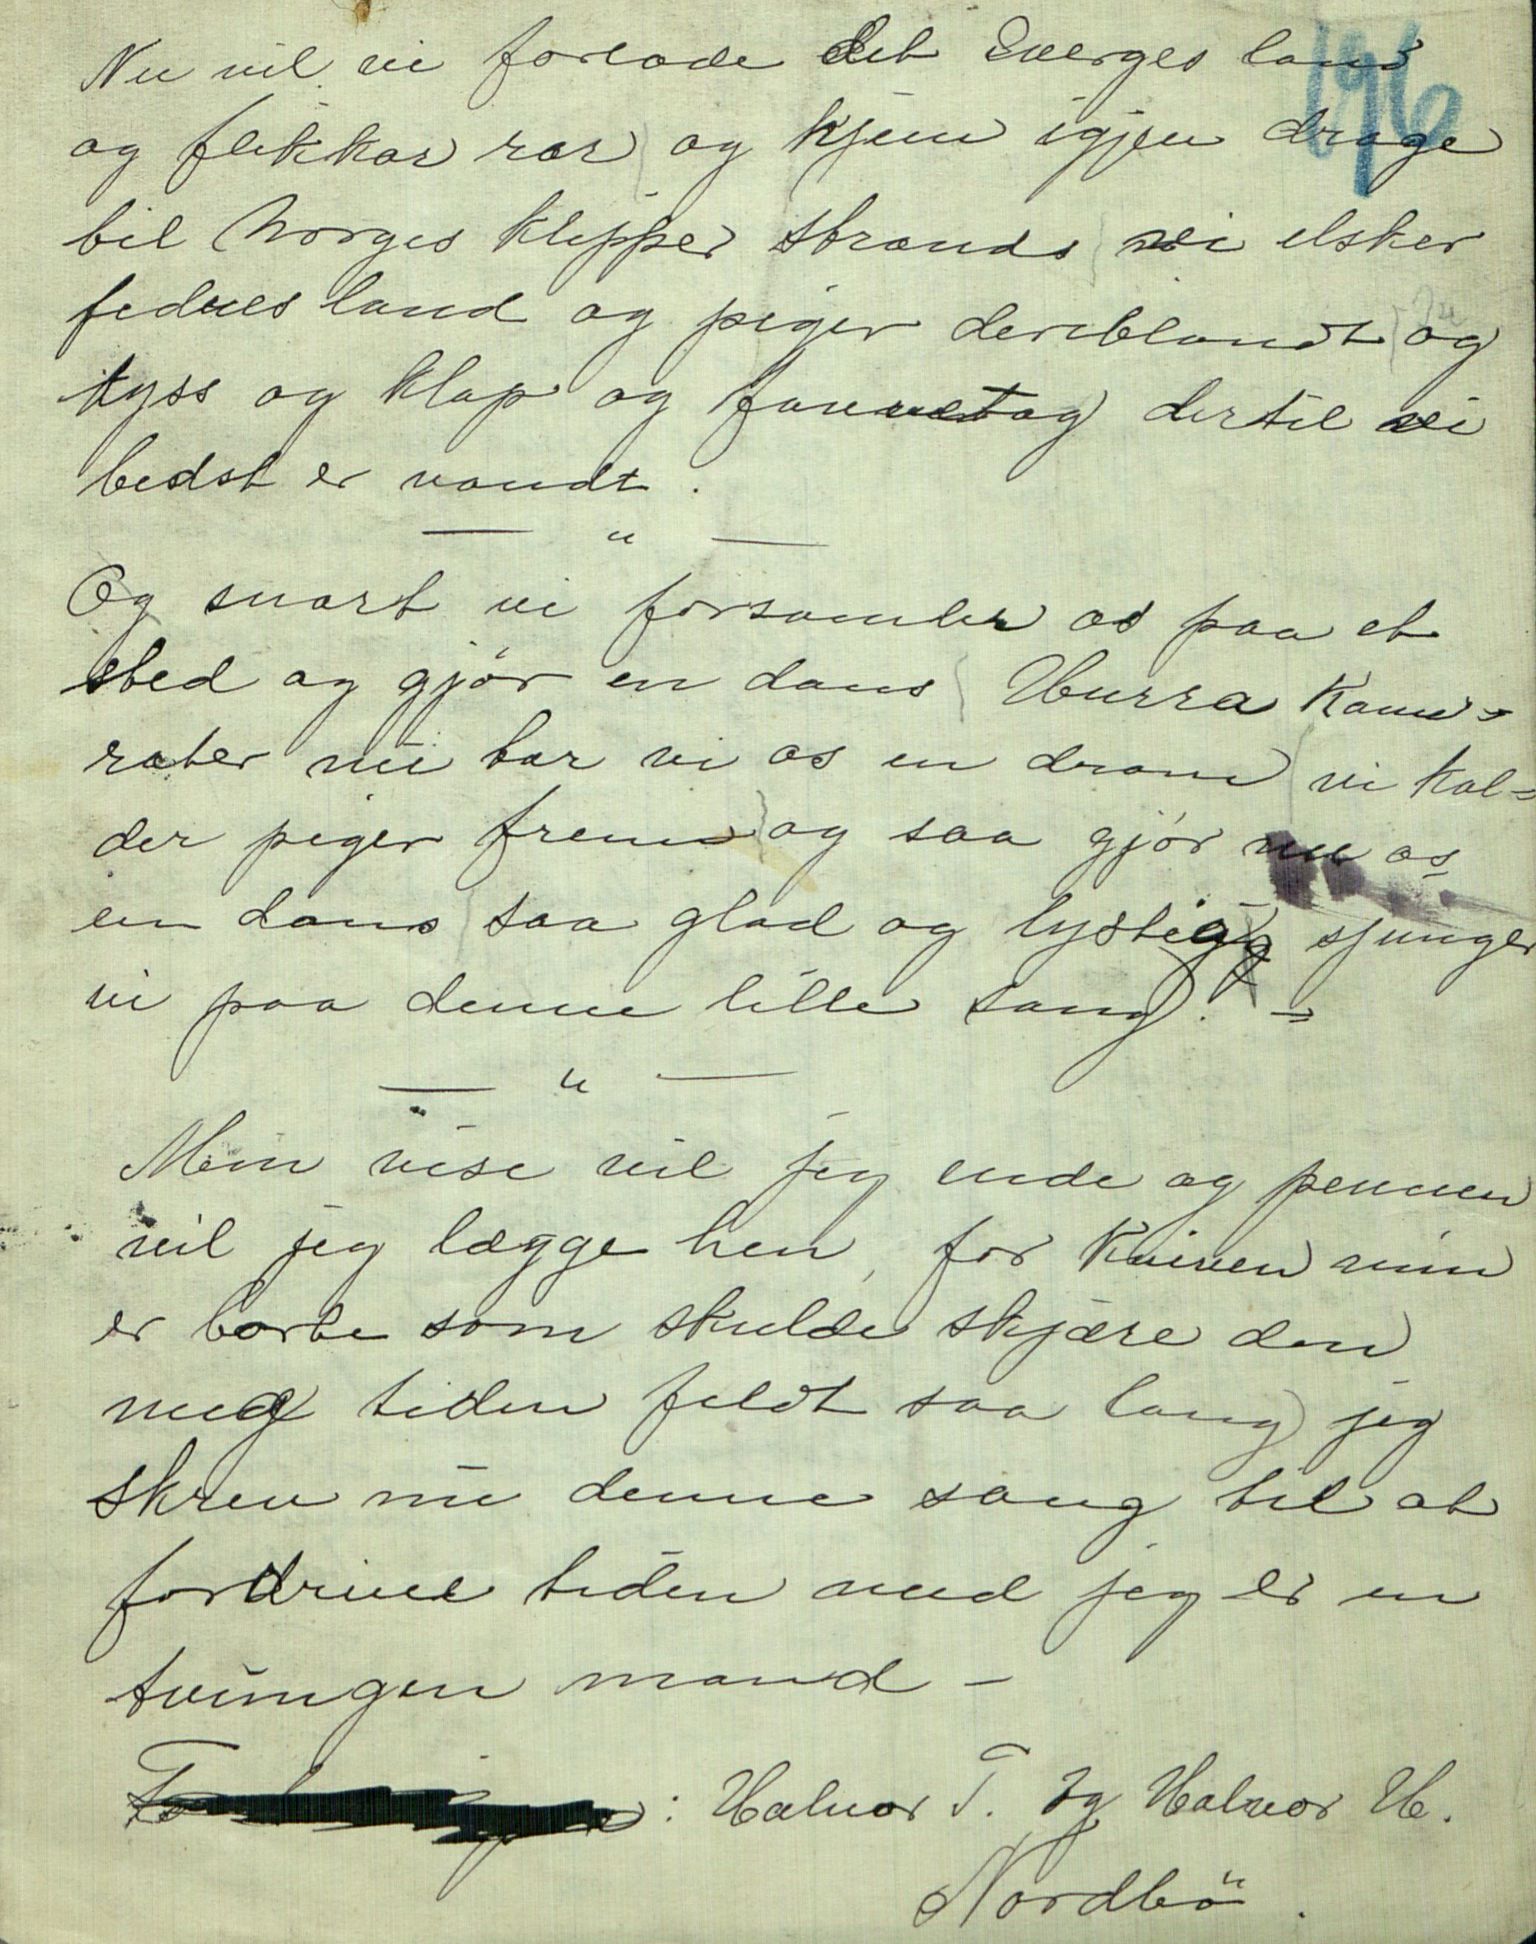 196
Nu vil vi forlade det Sverges land
og flikkar rar og hjem igjen drage
til Norges klipper strands vi elsker
fednes land og piger deriblandt og
kyss og klap og favnetag dertil vi
bedst er vandt.
— " —
Og snart vi forsamler os paa et
sted og gjør en dans Hurra Kame-
rater nu tar vi os en dram vi kal-
der piger frem og saa gjør nu os
en dans saa glad og lystig sjunger
vi paa denne lille sang. -
— " —
Men vise vil jeg ende og pennen
vil jeg lægge hen, for Kniven min
er borte som skulde skjære den
meg tiden feldt saa lang jeg
skrev nu denne sang til at
fordrive tiden med jeg er en
tvingen mand -
: Halvor T. og Halvor H.
Nordbö.